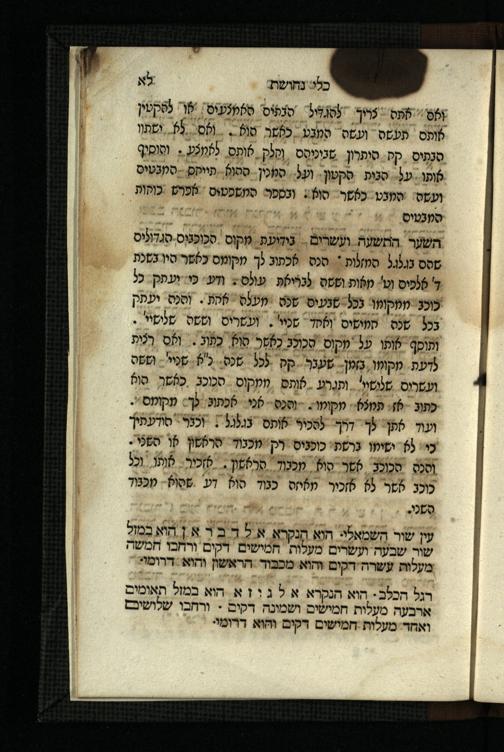 כלי נחושת לא
ואם אתה צריך להגדיל הבתים האמצעים או להקטין
אותם תעשה ועשה המבט כאשר הוא . ואם לא ישתוו
הבתים קח היתרון שביניהם וחלק אותם לאמצע . והוסיף
אותו על הבית הקטון ועל המנין ההוא תייחס המבטים
ועשה המבט כאשר הוא . ובספר המשפטים אפרש כוחות
המבטים
השער התשעה ועשרים בידיעת מקום הכוכבים הגדולים
שהם בגלגל המזלות . הנה אכתוב לך מקומם כאשר היו בשנת
ד' אלפים וט' מאות וששה לבריאת עולם . ודע כי יעתק כל
כוכב ממקומו בכל שבעים שנה מעלה אחת . והנה יעתק
בכל שנה חמישים ואחד שניי' . ועשרים וששה שלישיי' .
ותוסף אותו על מקום הכוכב כאשר הוא כתוב . ואם רצית
לדעת מקומו בזמן שעבר קח לכל שנה נ"א שניי' וששה
ועשרים שלישיי' ותגרע אותם ממקום הכוכב כאשר הוא
כתוב אז תמצא מקומו . והנה אני אכתוב לך מקומם .
ועוד אתן לך דרך להכיר אותם בגלגל . וכבר הודעתיך
כי לא ישימו ברשת כוכבים רק מכבוד הראשון או השני .
והנה הכוכב אשר הוא מכבוד הראשון . אזכיר אותו וכל
כוכב אשר לא אזכיר מאיזה כבוד הוא דע שהוא מכבוד
השני .
עין שור השמאלי . הוא הנקרא אלדבראן הוא במזל
שור שבעה ועשרים מעלות חמישים דקים ורחבו חמשה
מעלות עשרה דקים והוא מכבוד הראשון והוא דרומי .
רגל הכלב . הוא הנקרא אלגיזא הוא במזל תאומים
ארבעה מעלות חמישים ושמונה דקים . ורחבו שלושים
ואחד מעלות חמישים דקים והוא דרומי .